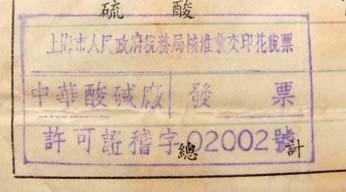 硫酸
上海市人民政府稅務局核准彙交印花稅票
中華酸碱廠 發票
許可證稽字02002號
總計